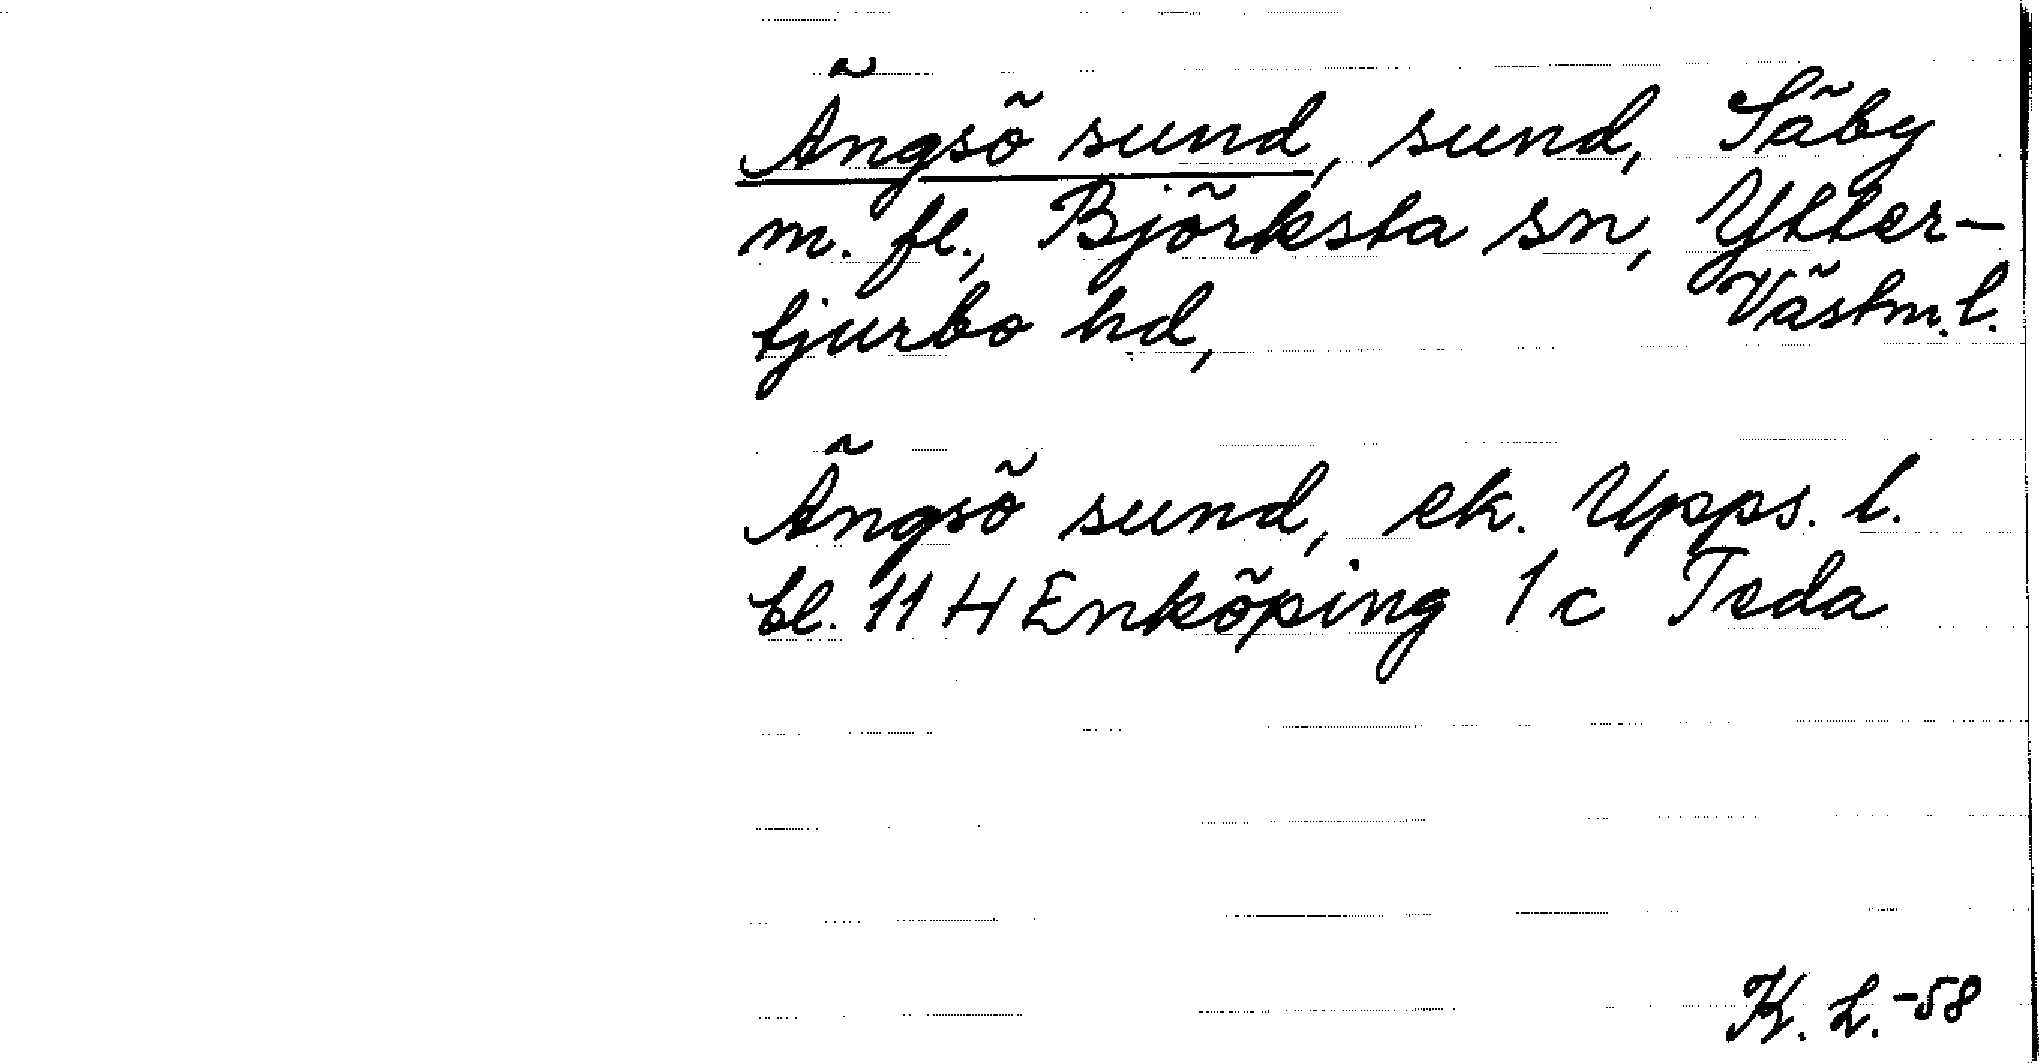 Ängsö sund, sund, Säby
m. fl., Björksta sn, Ytter-
tjurbo hd, Västm. l.
Ängsö sund, ek. Upps. l.
bl. 11 H Enköping 1 c Teda
K. L. -58